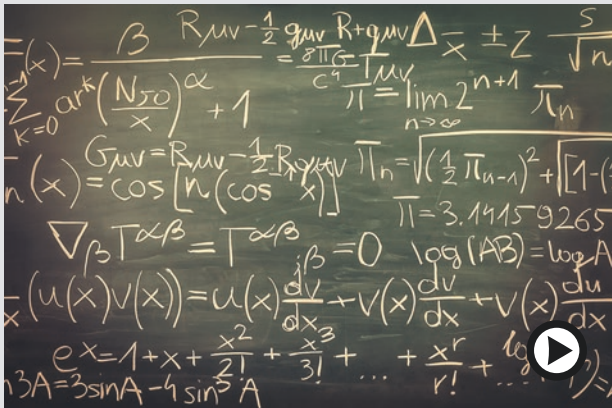 β  Rμν − ½ gμν R + gμν Δ  x̄ ± Z  S/√n
(x) = ———  = 8πG/c⁴ Tμν
∑ k=0 n−1 ar^k (N50/x)^α + 1  π = lim n→∞ 2^n+1 πn
Gμν = Rμν − ½ Rgμν  πn = √(½ πn−1)² + [1 − (
n(x) = cos [n(cos⁻¹ x)]
π = 3.14159265
∇β T^αβ = T^αβ ;β = 0  log(AB) = log A
(u(x)v(x)) = u(x) dv/dx + v(x) dv/dx + v(x) du/dx
ex = 1 + x + x²/2! + x³/3! + ... + x^r/r! + ....
n3A = 3sinA − 4sin³A